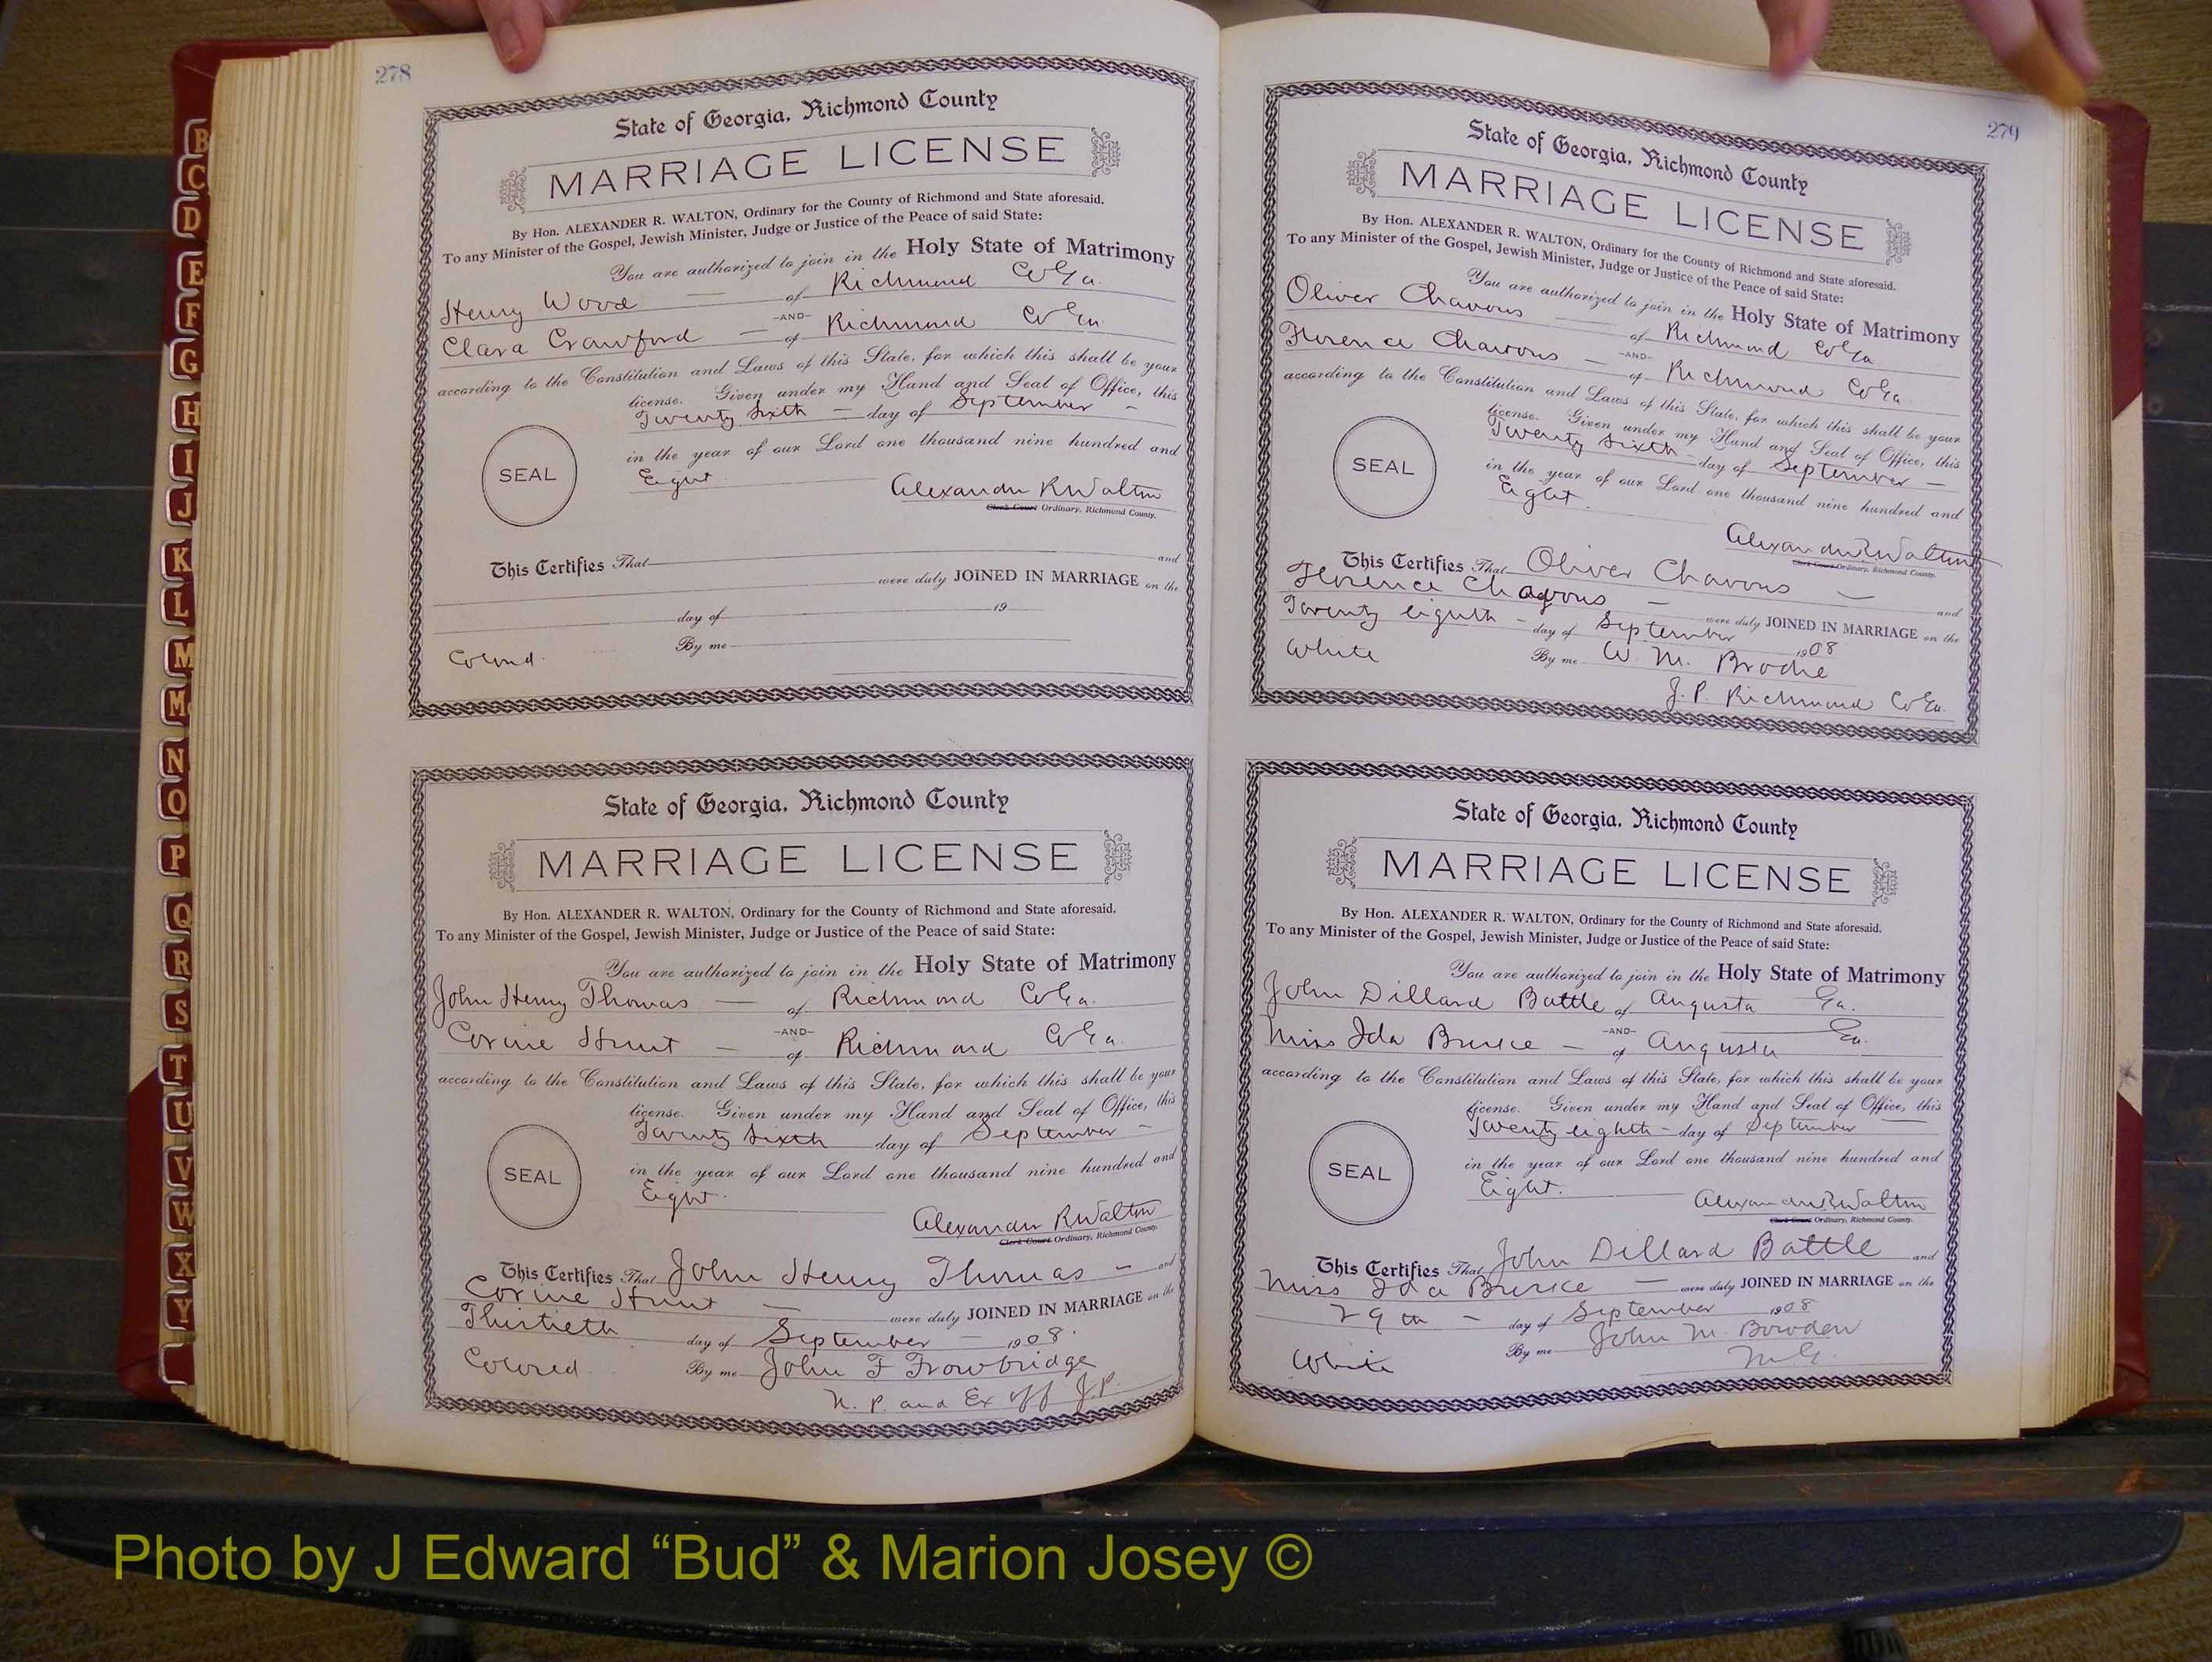 278
State of Georgia, Richmond County
MARRIAGE LICENSE
By Hon. ALEXANDER R. WALTON, Ordinary for the County of Richmond and State aforesaid.
To any Minister of the Gospel, Jewish Minister, Judge or Justice of the Peace of said State:
You are authorized to join in the Holy State of Matrimony
Henry Wood — of Richmond Co Ga.
-AND-
Clara Crawford — of Richmond Co Ga
according to the Constitution and Laws of this State, for which this shall be your
license. Given under my Hand and Seal of Office, this
Twenty Sixth — day of September -
in the year of our Lord one thousand nine hundred and
SEAL
Eight
Alexander R Walton
Clerk Court Ordinary, Richmond County.
This Certifies That and
were duly JOINED IN MARRIAGE on the
day of 19
Colored. By me
State of Georgia, Richmond County
MARRIAGE LICENSE
By Hon. ALEXANDER R. WALTON, Ordinary for the County of Richmond and State aforesaid.
To any Minister of the Gospel, Jewish Minister, Judge or Justice of the Peace of said State:
You are authorized to join in the Holy State of Matrimony
John Henry Thomas — of Richmond Co Ga.
-AND-
Corine Hunt — of Richmond Co Ga.
according to the Constitution and Laws of this State, for which this shall be your
license. Given under my Hand and Seal of Office, this
Twenty Sixth day of September -
in the year of our Lord one thousand nine hundred and
SEAL
Eight.
Alexander R Walton
Clerk Court Ordinary, Richmond County.
This Certifies That John Henry Thomas — and
Corine Hunt — were duly JOINED IN MARRIAGE on the
Thirtieth day of September — 1908.
Colored. By me John F Trowbridge
N. P. and Ex off J.P.
279
State of Georgia, Richmond County
MARRIAGE LICENSE
By Hon. ALEXANDER R. WALTON, Ordinary for the County of Richmond and State aforesaid.
To any Minister of the Gospel, Jewish Minister, Judge or Justice of the Peace of said State:
You are authorized to join in the Holy State of Matrimony
Oliver Chavous — of Richmond Co Ga
-AND-
Florence Chavous — of Richmond Co Ga
according to the Constitution and Laws of this State, for which this shall be your
license. Given under my Hand and Seal of Office, this
Twenty Sixth - day of September —
in the year of our Lord one thousand nine hundred and
SEAL
Eight.
Alexander R Walton
Clerk Court Ordinary, Richmond County.
This Certifies That Oliver Chavous — and
Florence Chavous — were duly JOINED IN MARRIAGE on the
Twenty eighth - day of September 1908
White By me W. M. Brodie
J. P. Richmond Co Ga.
State of Georgia, Richmond County
MARRIAGE LICENSE
By Hon. ALEXANDER R. WALTON, Ordinary for the County of Richmond and State aforesaid.
To any Minister of the Gospel, Jewish Minister, Judge or Justice of the Peace of said State:
You are authorized to join in the Holy State of Matrimony
John Dillard Battle of Augusta Ga.
-AND-
Miss Ida — of Augusta Ga.
according to the Constitution and Laws of this State, for which this shall be your
license. Given under my Hand and Seal of Office, this
Twenty eighth - day of September —
in the year of our Lord one thousand nine hundred and
SEAL
Eight.
Alexander R Walton
Clerk Court Ordinary, Richmond County.
This Certifies That John Dillard Battle and
Miss Ida — were duly JOINED IN MARRIAGE on the
29th - day of September 1908
White By me John M. Bowden
M.G.
B
C
D
E
F
G
H
I
J
K
L
M
Mc
N
O
P
Q
R
S
T
U
V
W
X
Y
Photo by J Edward “Bud” & Marion Josey ©